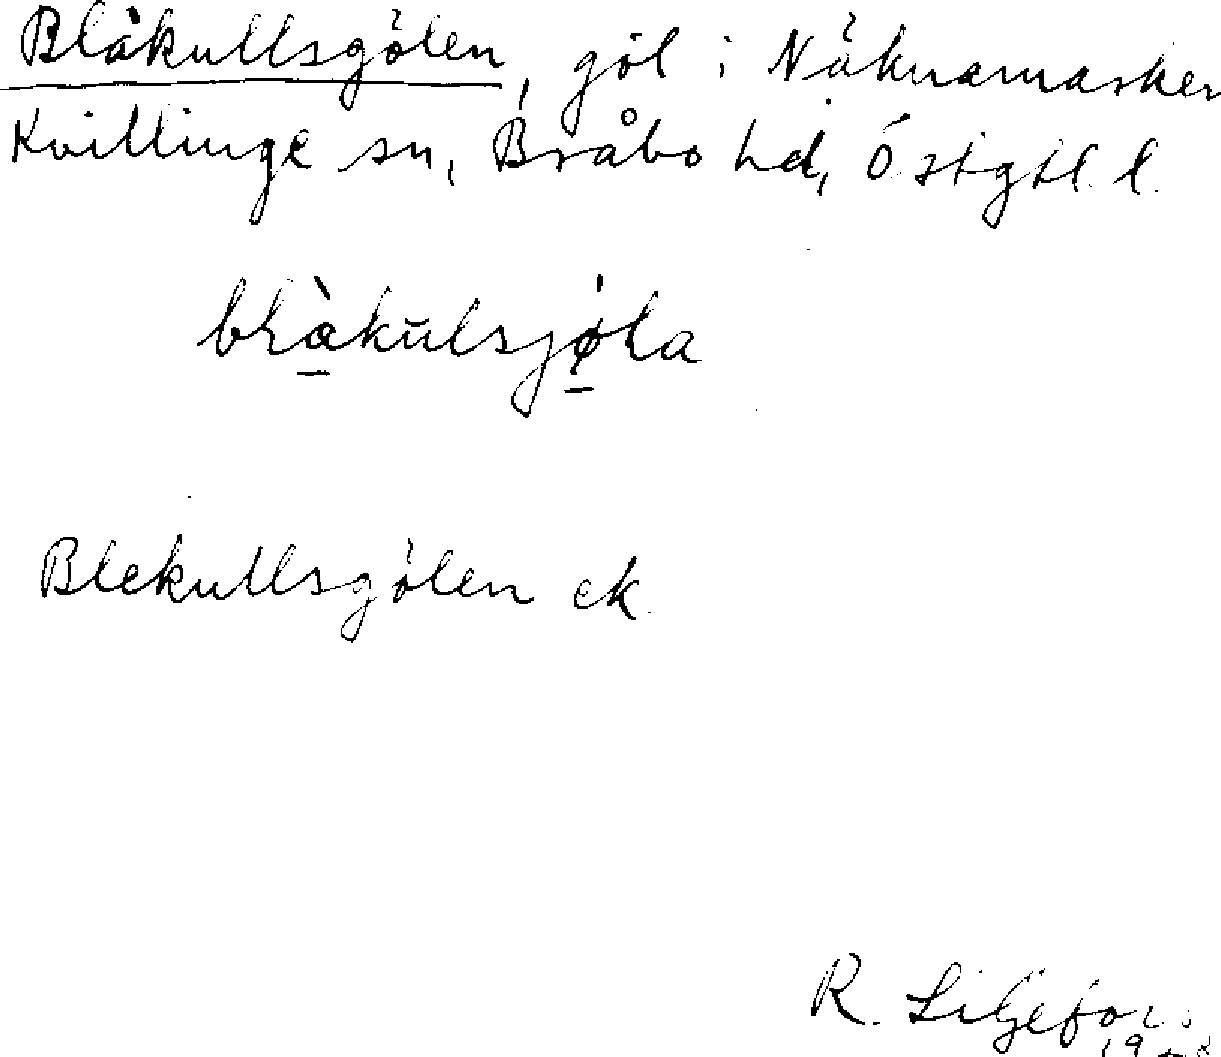 Blåkullsgölen, göl i Näknamarken
Kvillinge sn, Bråbo hd, Östgtl. l.
blàkulsjǿla
Blekullsgölen ek.
R. Liljefors